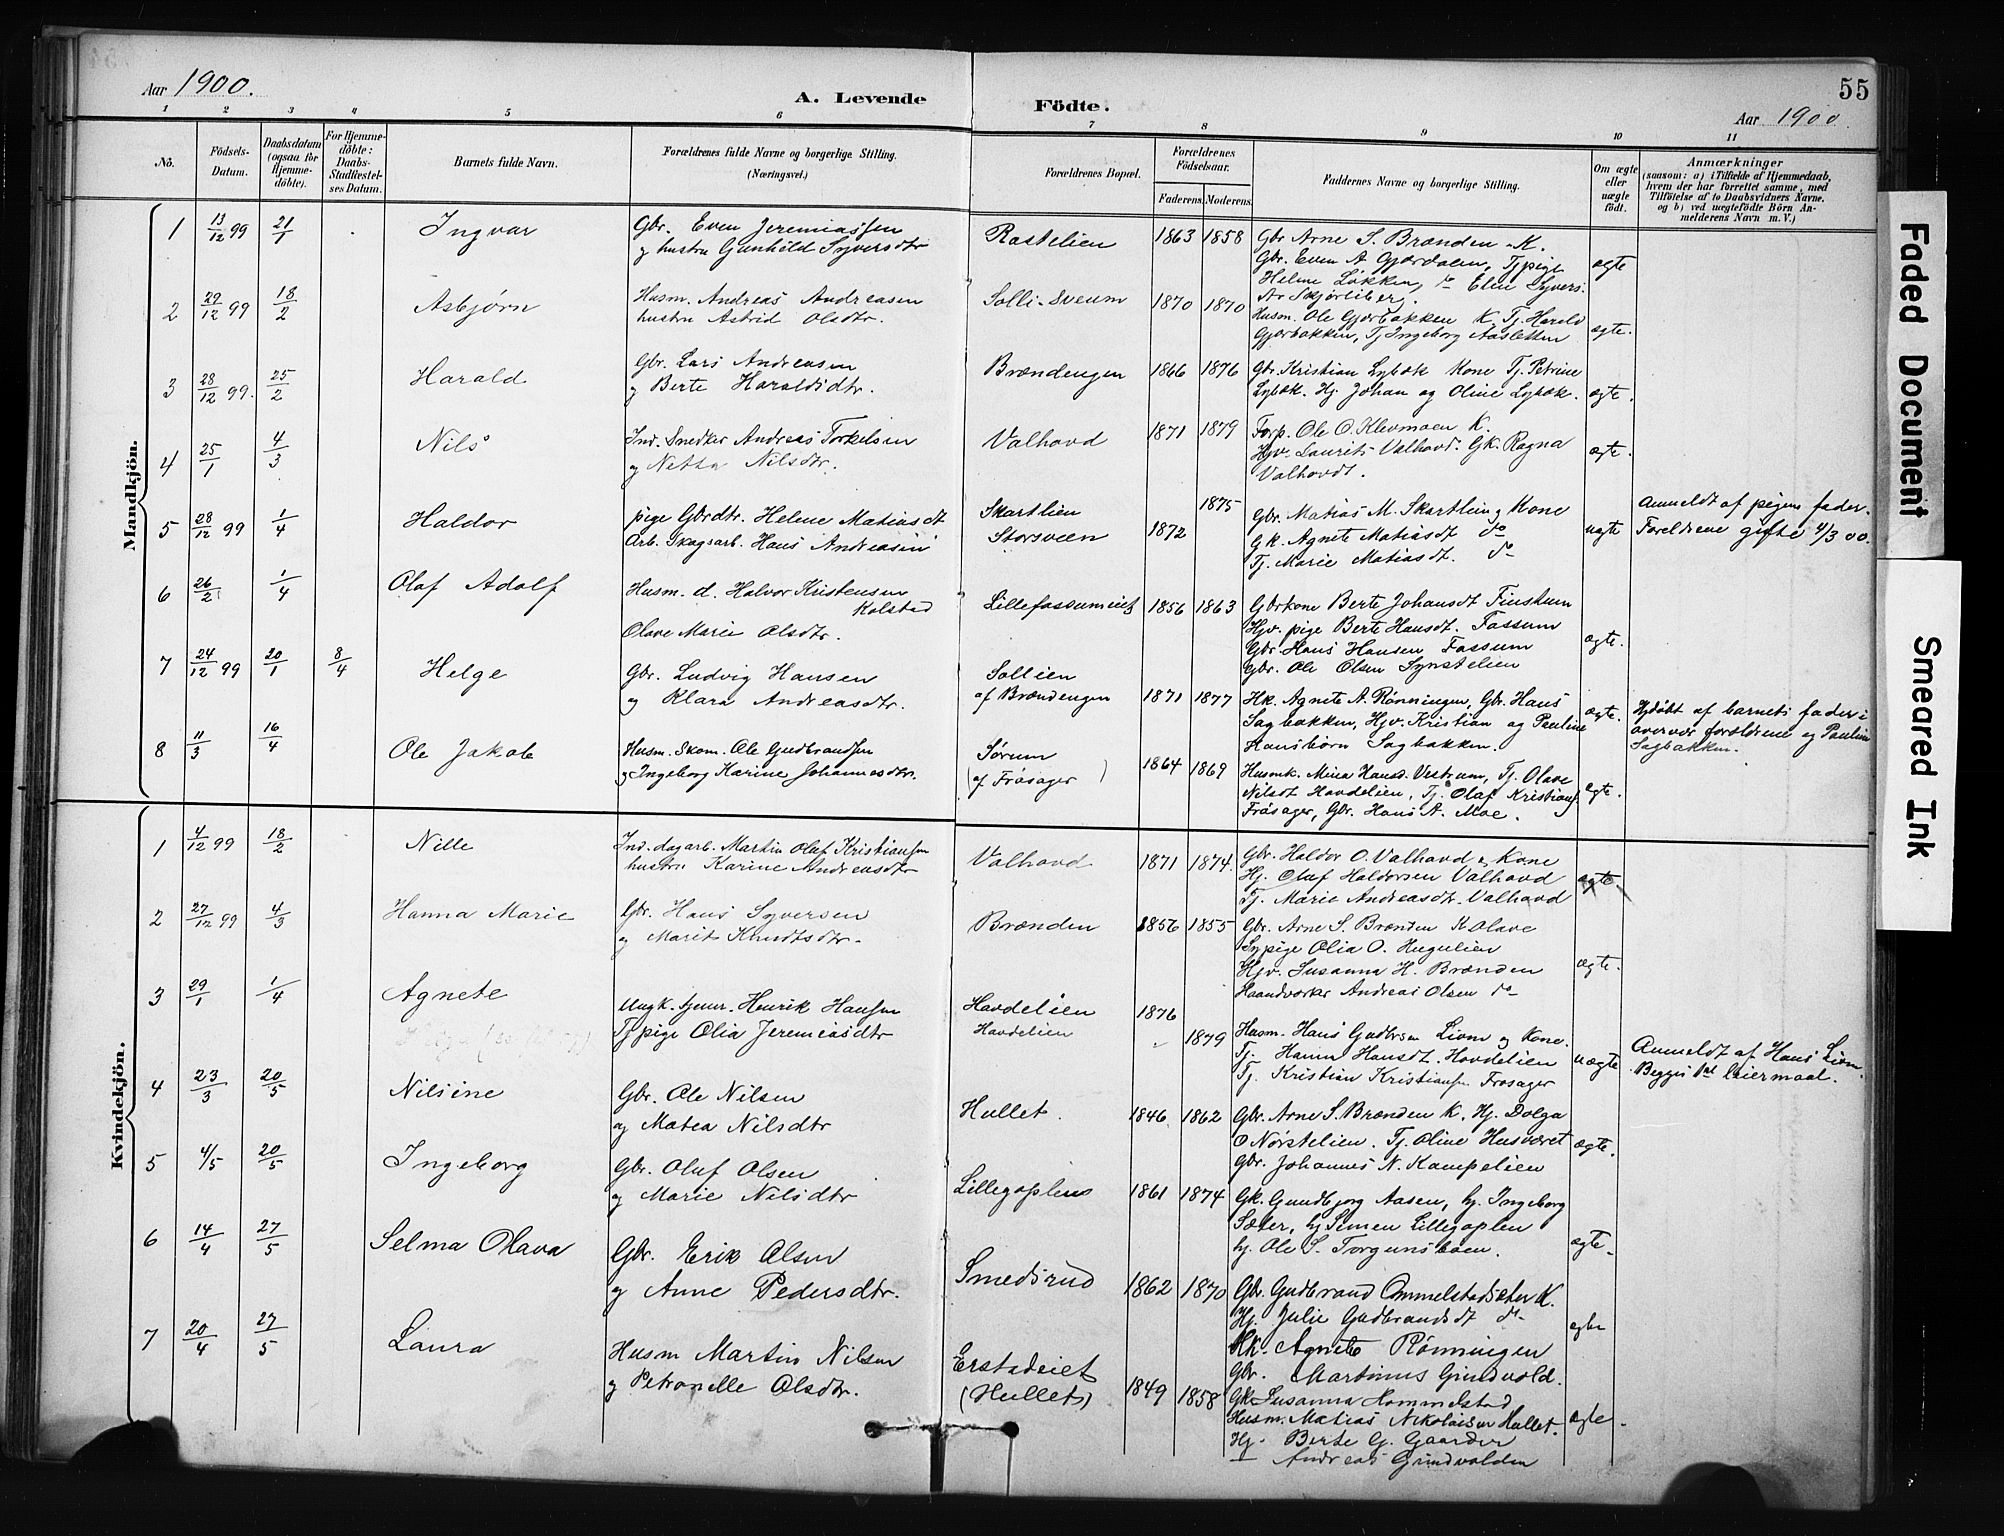 Aar 1900.
A. Levende Födte.
55
Aar 1900.
1 2 3 4 5 6 7 8 9 10 11
No.
Födsels-Datum.
Daabsdatum (ogsaa for Hjemme-döbte).
For Hjemme-döbte: Daabs-Stadfæstel-ses Datum.
Barnets fulde Navn.
Forældrenes fulde Navne og borgerlige Stilling.
(Næringsvei.)
Forældrenes Bopæl.
Forældrenes Födselsaar.
Faderens. Moderens.
Faddernes Navne og borgerlige Stilling.
Om ægte eller uægte födt.
Anmærkninger
(saasom: a) i Tilfælde af Hjemmedaab,
hvem der har forrettet samme, med
Tilföielse af to Daabsvidners Navne,
og b) ved uægtefödte Börn An-
melderens Navn m. V.)
Mandkjön.
1 13/12 99 21/1 Ingvar
Gbr. Even Jeremiassen
og hustru Gunhild Syversdtr
Rastelien 1863 1858
Gbr Arne S. Brænden K.
Gbr. Even A Gjærdalen, Tjpige
Helene Løkken, do Elen Syvers.
Skjærliberg.
ægte
2 29/12 99 18/2 Asbjørn
Husm. Andreas Andreasen
hustru Astrid Olsdtr.
Solli-Sveum 1870 1870
Husm. Ole Gjærbakken K, Tj. Harald
Gjærbakken, Tj Ingeborg Aasletten
ægte.
3 28/12 99. 25/2 Harald
Gbr. Lars Andreasen
og Berte Haraldsdtr.
Brændengen 1866 1876
Gbr. Kristian Lybæk Kone Tj. Petrine
Lybæk. Hj. Johan og Oline Lybæk.
ægte.
4 25/1 4/3 Nils
Ind. Snedker Andreas Torkelsen
og Netta Nilsdtr.
Valhovd 1871 1879
Forp. Ole O. Klevmoen K.
Hjv. Laurits Valhovd. Gk. Ragna
Valhovdt.
ægte.
5 28/12 99 1/4 Haldor
pige Gbrdtr. Helene Matiasdt
Arb. Skogsarb. Hans Andreasen
Skartlien 1875
Storsveen 1872
Gbr. Matias M. Skartlien og Kone
Gk. Agnete Matiasdt do
Tj. Marie Matiasdt. do
uægte
Anmeldt af pigens fader.
Foreldrene gifte 4/3 00.
6 26/2 1/4 Olaf Adolf
Husm. d. Halvor Kristensen
Kolstad
Olave Marie Olsdtr.
Lillefossumeiet 1856 1863
Gbrkone Berte Johansdt Finstuen
Hjv. pige Berte Hansdt. Fossum
Gbr Hans Hansen Fossum
Gbr. Ole Olsen Synstelien
ægte.
7 24/12 99 20/1 8/4 Helge
Gbr. Ludvig Hansen
og Klara Andreasdtr.
Sollien
af Brændengen 1871 1877
Hk. Agnete A. Rönningen, Gbr. Hans
Sagbakken, Hjv. Kristian og Pauline
Hansbörn Sagbakken.
ægte.
Hjdöbt af barnets fader i
overvær forældrene og Pauline
Sagbakken.
8 11/3 16/4 Ole Jakob
Husm. Skom. Ole Gudbrandsen
og Ingeborg Karine Johannesdtr.
Sørum
(af Frösager) 1864 1869
Husmk. Mina Hansd. Vestrum, Tj. Olave
Nilsdt Hovdelien, Tj. Olaf Kristians.
Frösager, Gbr. Hans A. Moe.
ægte.
Kvindekjön.
1 4/12 99 18/2 Nille
Ind. dagarb. Martin Oluf Kristiansen
hustru Karine Andreasdtr
Valhovd 1871 1874
Gbr. Haldor O. Valhovd og Kone
Hj. Oluf Haldorsen Valhovd
Tj. Marie Andreasdt. Valhovd
ægte.
2 27/12 99 4/3 Hanna Marie
Gbr. Hans Syversen
og Marit Knudtsdtr.
Brænden 1856 1855
Gbr. Arne S. Brænden K Olave
Sypige Olia O. Hugulien
Hjv. Susanna H. Brænden
Haandværker Andreas Olsen do
ægte.
3 29/1 1/4 Agnete
Ungk. tjener. Henrik Hansen
Tjpige Olia Jeremiasdtr
Hovdelien 1876
Hovdelien 1879
Husm. Hans Gudbrsen Lien og Kone.
Tj. Hanna Hansdt. Hovdelien
Tj. Kristian Kristiansen Frosager
uægte
Anmeldt af Hans Lien.
Begges 1ste leiermaal.
4 23/3 20/5 Nilsine
Gbr. Ole Nilsen
og Matea Nilsdtr
Hullet. 1846 1862
Gbr. Arne S. Brænden K. Hj. Dolga
O Nørstelien. Tj. Oline Husværet
Gbr. Johannes N. Kampelien
ægte.
5 4/5 20/5 Ingeborg
Gbr. Oluf Olsen
og Marie Nilsdtr
Lillegoplens 1861 1874
Gk. Gundbjørg Aasen, hj. Ingeborg
Sæter, hj Simen Lillegoplen
hj. Ole S. Torgunsboen.
ægte.
6 14/4 27/5 Selma Olava
Gbr. Erik Olsen
og Anne Pedersdtr.
Smedsrud 1862 1870
Gbr. Gudbrand Ommelstadsæter K.
Hj. Julie Gudbrandsdt do
Hk. Agnete Rönningen
Gbr. Martinus Grindvold.
ægte
7 20/4 27/5 Laura
Husm Martin Nilsen
og Petronelle Olsdtr.
Erstadeiet
(Hullet) 1849 1858
Gk. Susanna Hommelstad
Husm. Matias Nikolaisen Hullet.
Hj. Berte G. Gaarder
Andreas Grindvolden
ægte.
Faded Document
Smeared Ink